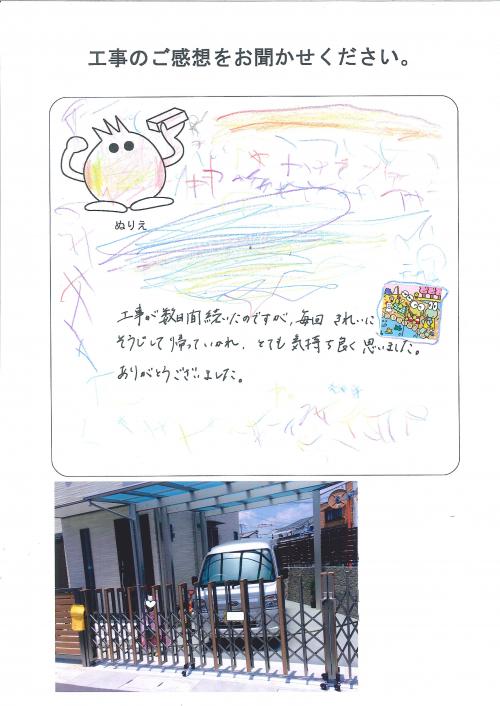 工事のご感想をお聞かせください。
ぬりえ
工事が数日間続いたのですが、毎回 きれいに
そうじして帰っていかれ、とても気持ち良く思いました。
ありがとうございました。